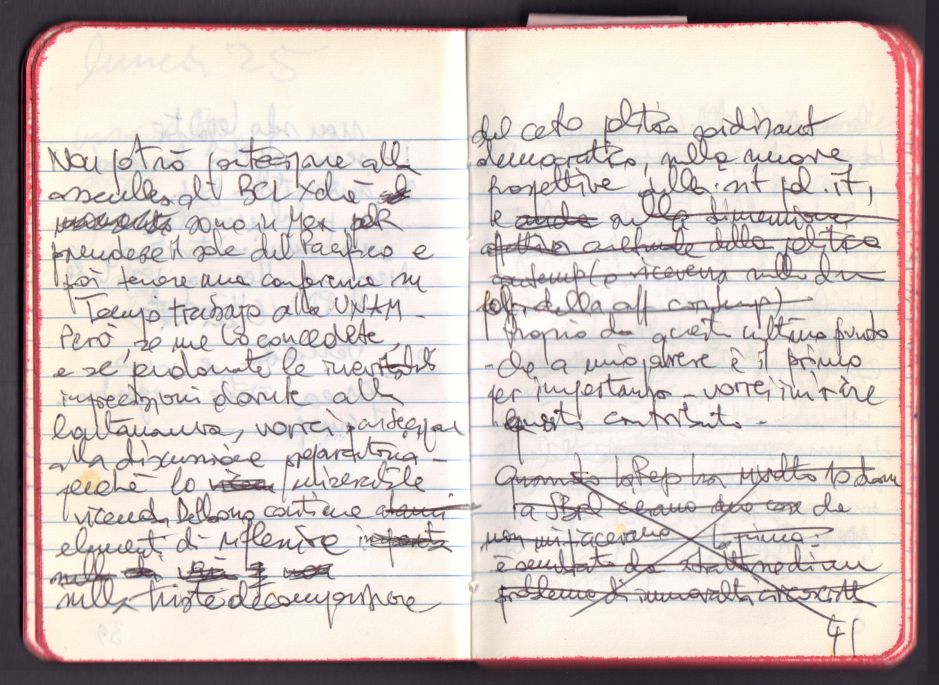 Non potrò partecipare alla
assemblea di BCL Xchè
sono in Mex per
prendere il sole del Pacifico e
poi tenere una conferenza su
Tiempo trabajo alla UNAM -
Però, se me lo concedete,
e se perdonate le inevitabili
imprecisioni dovute alla
lontananza, vorrei partecipare
alla discussione preparatoria -
perché la miserabile
vicenda Delbono contiene
elementi di riflessione
sulla triste decomposizione
del ceto politico soidisant
democratico, sulle nuove
prospettive della sit pol. it,
e sulla dimensione
affettiva culturale della politica
contemp (o viceversa sulla dim
polit della aff contemp)
Proprio da quest ultimo punto
- che a mio parere è il primo
per importanza - vorrei iniziare
questo contributo -
Quando la Rep ha
cerano due cose che
non mi piacevano La prima:
è
problema di immoralità
41